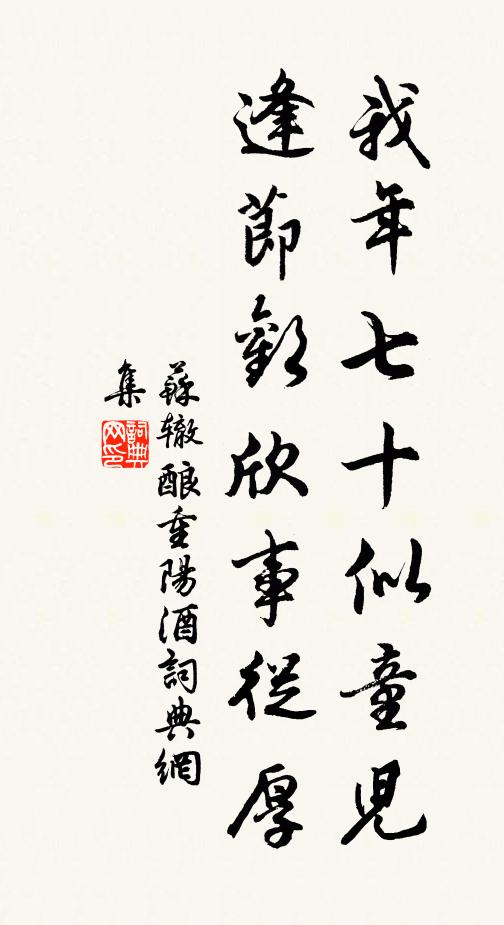 我年七十似童兒
逢節歡欣事從厚
蘇轍酿重陽酒詞典網
集
詞典
网印